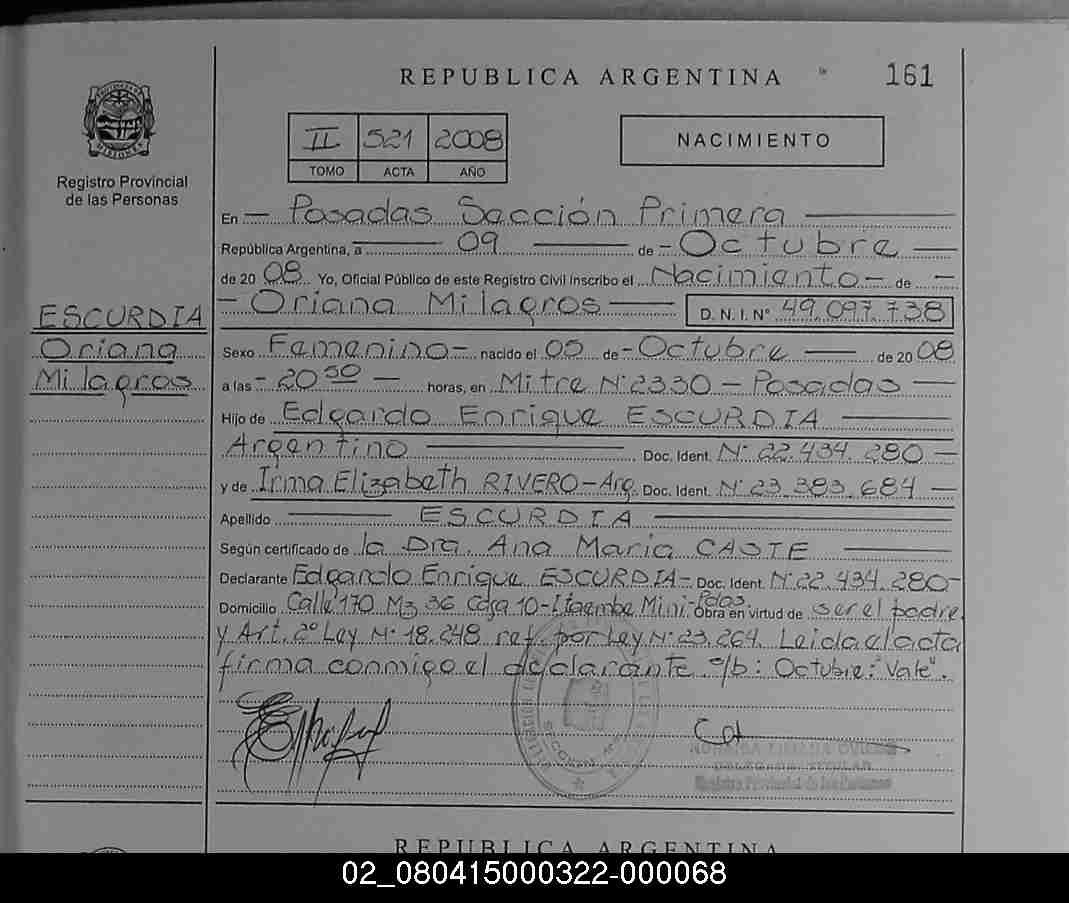 REPUBLICA ARGENTINA 161
II 521 2008
TOMO ACTA AÑO
NACIMIENTO
Registro Provincial
de las Personas
ESCURDIA
Oriana
Milagros
En Posadas Sección Primera
República Argentina, a 09 de Octubre
de 2008. Yo, Oficial Público de este Registro Civil inscribo el Nacimiento de
Oriana Milagros D. N. I. N° 49.097.738
Sexo Femenino nacido el 05 de Octubre de 2008
a las 20 50 horas, en Mitre N° 2330 - Posadas
Hijo de Edgardo Enrique ESCURDIA
Argentino Doc. Ident. N° 22.434.280
y de Irma Elizabeth RIVERO - Arg. Doc. Ident. N° 23.383.684
Apellido ESCURDIA
Según certificado de la Dra. Ana Maria CASTE
Declarante Edgardo Enrique ESCURDIA - Doc. Ident. N° 22.434.280
Domicilio Calle 170 Mz 36 Casa 10 - Itaembe Mini - Pdas Obra en virtud de ser el padre
y Art. 2° Ley N° 18.248 ref. por Ley N° 23.264. Leida el acta
firma conmigo el declarante. s/b: Octubre: "Vale".
TITULAR
Registro Provincial de las Personas
REPUBLICA ARGENTINA
02_080415000322-000068